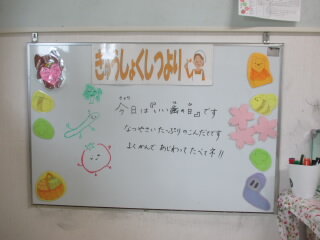 きゅうしょくしつより
きょう
今日は『いい歯の日』です
なつやさいたっぷりのこんだてです
よくかんで あじわってたべてネ!!